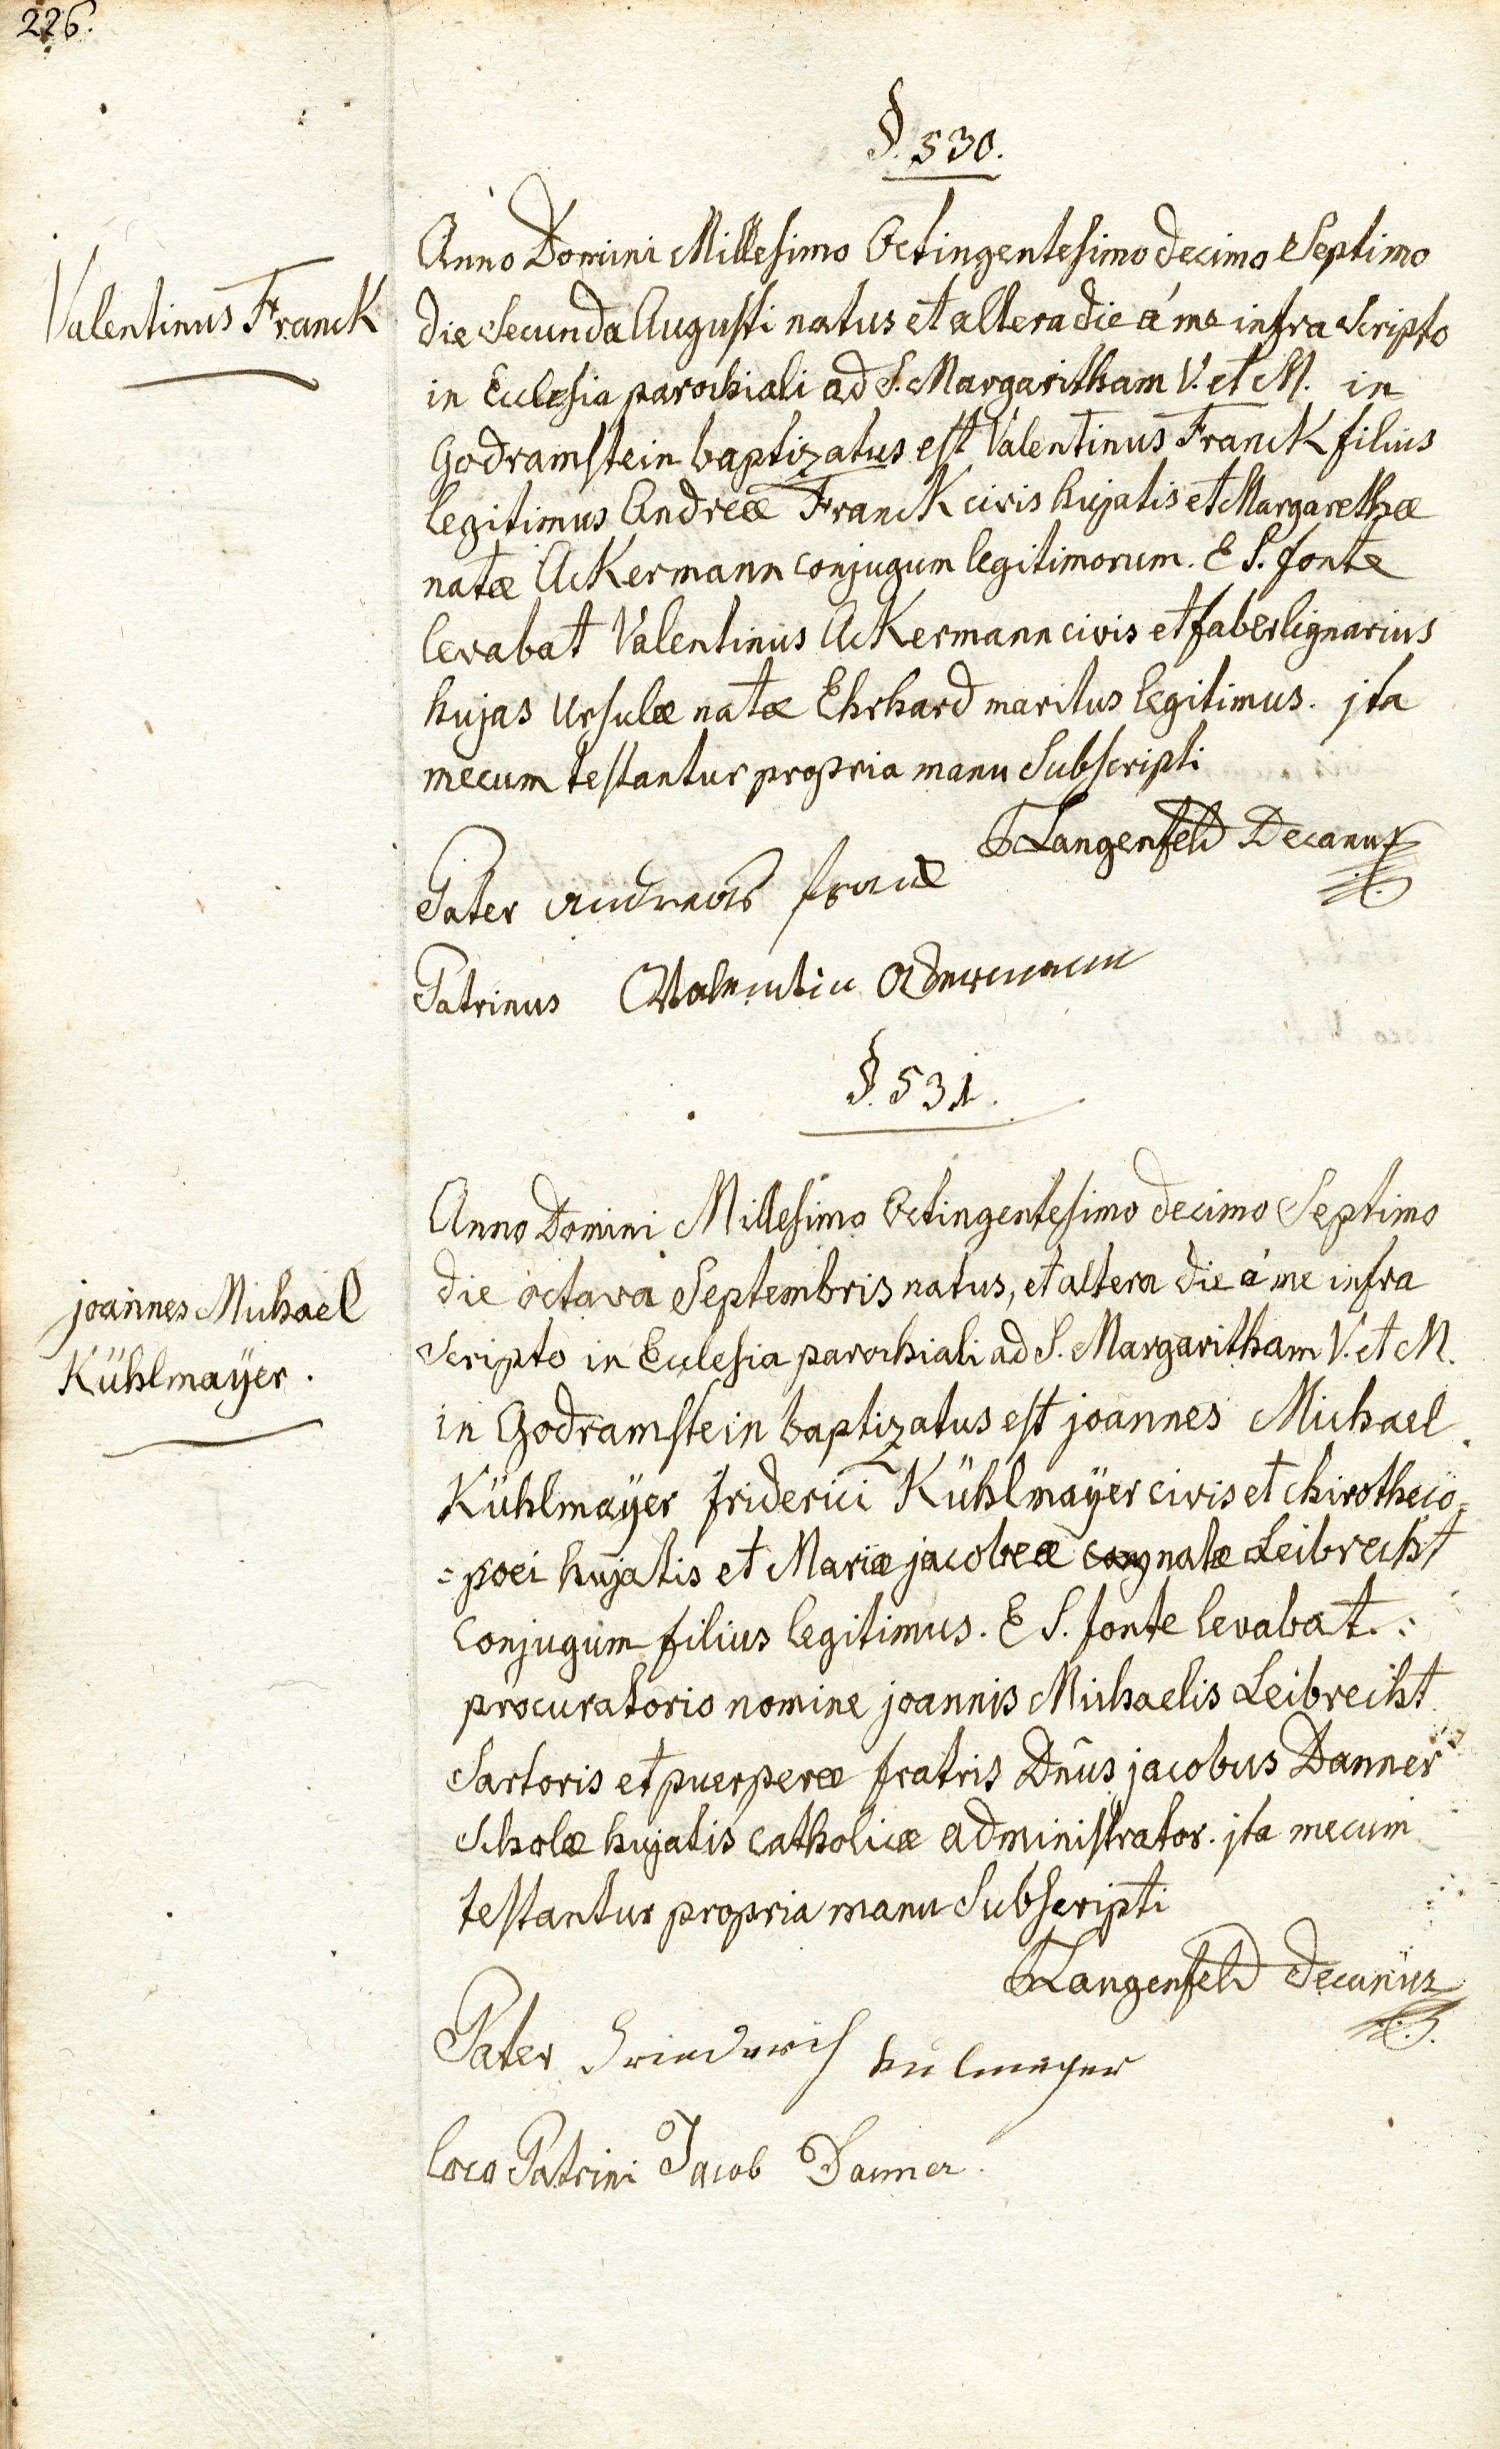 226.
§. 530.
Valentinus Franck
Anno Domini Millesimo Octingentesimo decimo Septimo
die Secunda Augusti natus et altera die á me infra scripto
in Ecclesia parochiali ad S. Margaritham V. et M. in
Godramstein baptizatus est Valentinus Franck filius
legitimus Andreæ Franck civis hujatis et Margarethæ
natæ Ackermann conjugum legitimorum. E S. fonte
levabat Valentinus Ackermann civis et faber lignarius
hujas Ursulæ natæ Ehrhard maritus legitimus. jta
mecum testantur propria manu Subscripti
Langenfeld Decanus
Pater Andreas franck
Patrinus Valentin Ackermann
§. 531.
joannes Michael
Kühlmaÿer.
Anno Domini Millesimo Octingentesimo decimo Septimo
die octava Septembris natus, et altera die á me infra
scripto in Ecclesia parochiali ad S. Margaritham V. et M.
in Godramstein baptizatus est joannes Michael
Kühlmaÿer friderici Kühlmaÿer civis et chirotheco=
=poei hujatis et Mariæ jacobeæ natæ Leibrecht
conjugum filius legitimus. E S. fonte levabat :
procuratorio nomine joannis Michaelis Leibrecht
Sartoris et puerperæ fratris Dn̄us jacobus Danner
Scholæ hujatis catholicæ administrator. jta mecum
testantur propria manu Subscripti
Langenfeld decanus
Pater Friederich Kulmeyer
loco Patrini Jacob Danner.